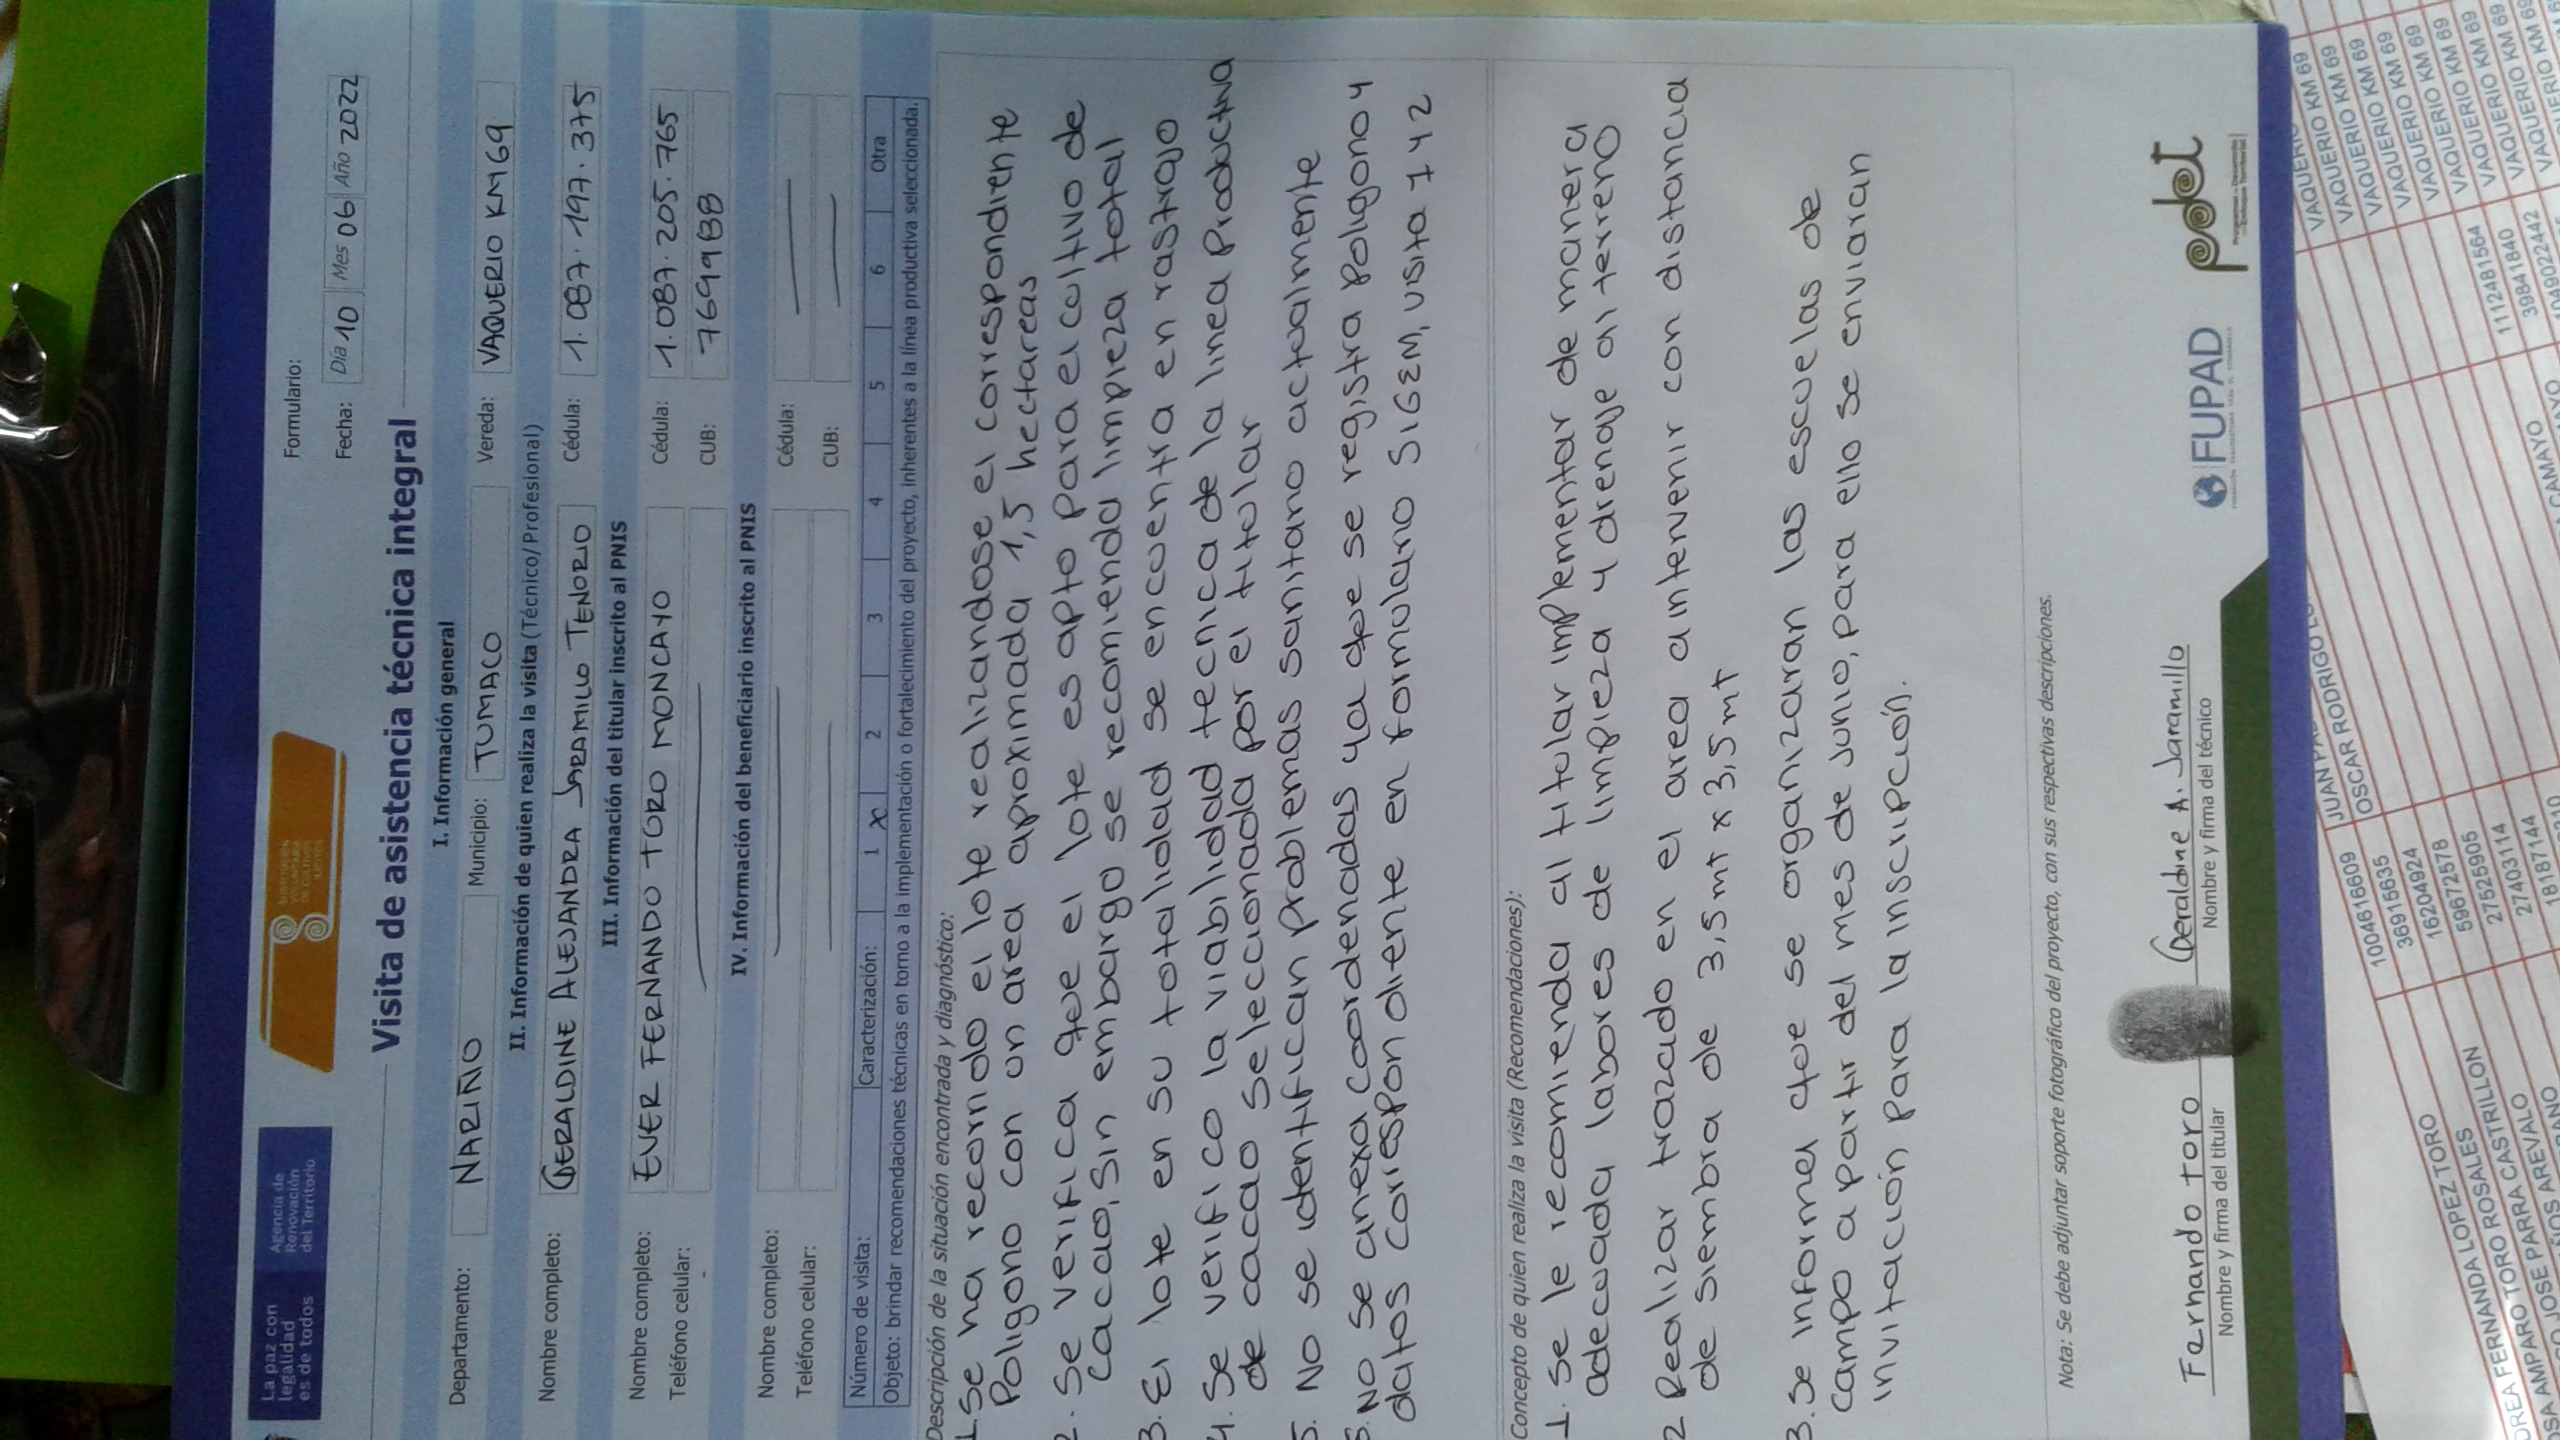 La paz con
legalidad
es de todos
Agencia de
Renovación
del Territorio
SUSTITUCIÓN
VOLUNTARIA
DE CULTIVOS
ILÍCITOS
Formulario:
Fecha: Día 10 Mes 06 Año 2022
Visita de asistencia técnica integral
I. Información general
Departamento: NARIÑO Municipio: TUMACO Vereda: VAQUERIO KM 69
II. Información de quien realiza la visita (Técnico/Profesional)
Nombre completo: GERALDINE ALEJANDRA JARAMILLO TENORIO Cédula: 1.087.197.375
III. Información del titular inscrito al PNIS
Nombre completo: EVER FERNANDO TORO MONCAYO Cédula: 1.087.205.765
Teléfono celular: CUB: 7699BB
IV. Información del beneficiario inscrito al PNIS
Nombre completo: Cédula:
Teléfono celular: CUB:
Número de visita: Caracterización: 1 X 2 3 4 5 6 Otra
Objeto: brindar recomendaciones técnicas en torno a la implementación o fortalecimiento del proyecto, inherentes a la línea productiva seleccionada.
Descripción de la situación encontrada y diagnóstico:
1. Se ha recorrido el lote realizandose el correspondiente
Poligono con un area aproximada 1,5 hectareas
2. Se verifica que el lote es apto para el cultivo de
cacao, sin embargo se recomienda limpieza total
3. El lote en su totalidad se encuentra en rastrojo
4. Se verifico la viabilidad tecnica de la linea Productiva
de cacao seleccionada por el titular
5. No se identifican problemas sanitario actualmente
6. No se anexa coordenadas ya que se registra Poligono y
datos correspondiente en formulario SIGEM, visita 1 y 2
Concepto de quien realiza la visita (Recomendaciones):
1. Se le recomienda al titular implementar de manera
adecuada labores de limpieza y drenaje al terreno
2 Realizar trazado en el area a intervenir con distancia
de siembra de 3,5 mt x 3,5 mt
3. Se informa que se organizaran las escuelas de
campo a partir del mes de Junio, para ello se enviaran
invitación para la inscripción.
Nota: Se debe adjuntar soporte fotográfico del proyecto, con sus respectivas descripciones.
Fernando toro
Nombre y firma del titular
Geraldine A. Jaramillo
Nombre y firma del técnico
FUPAD
pdet
Programas de Desarrollo
con Enfoque Territorial
JUAN
OSCAR RODRIGO
1004616609
36915635
16204924
59672578
27525905
27403114
18187144
FERNANDA LOPEZ TORO
AMPARO TORO ROSALES
PARRA CASTRILLON
JOSE PARRA AREVALO
CAMAYO
1112481564
39841840
1049022442
VAQUERIO KM 69
VAQUERIO KM 69
VAQUERIO KM 69
VAQUERIO KM 69
VAQUERIO KM 69
VAQUERIO KM 69
VAQUERIO KM 69
VAQUERIO KM 69